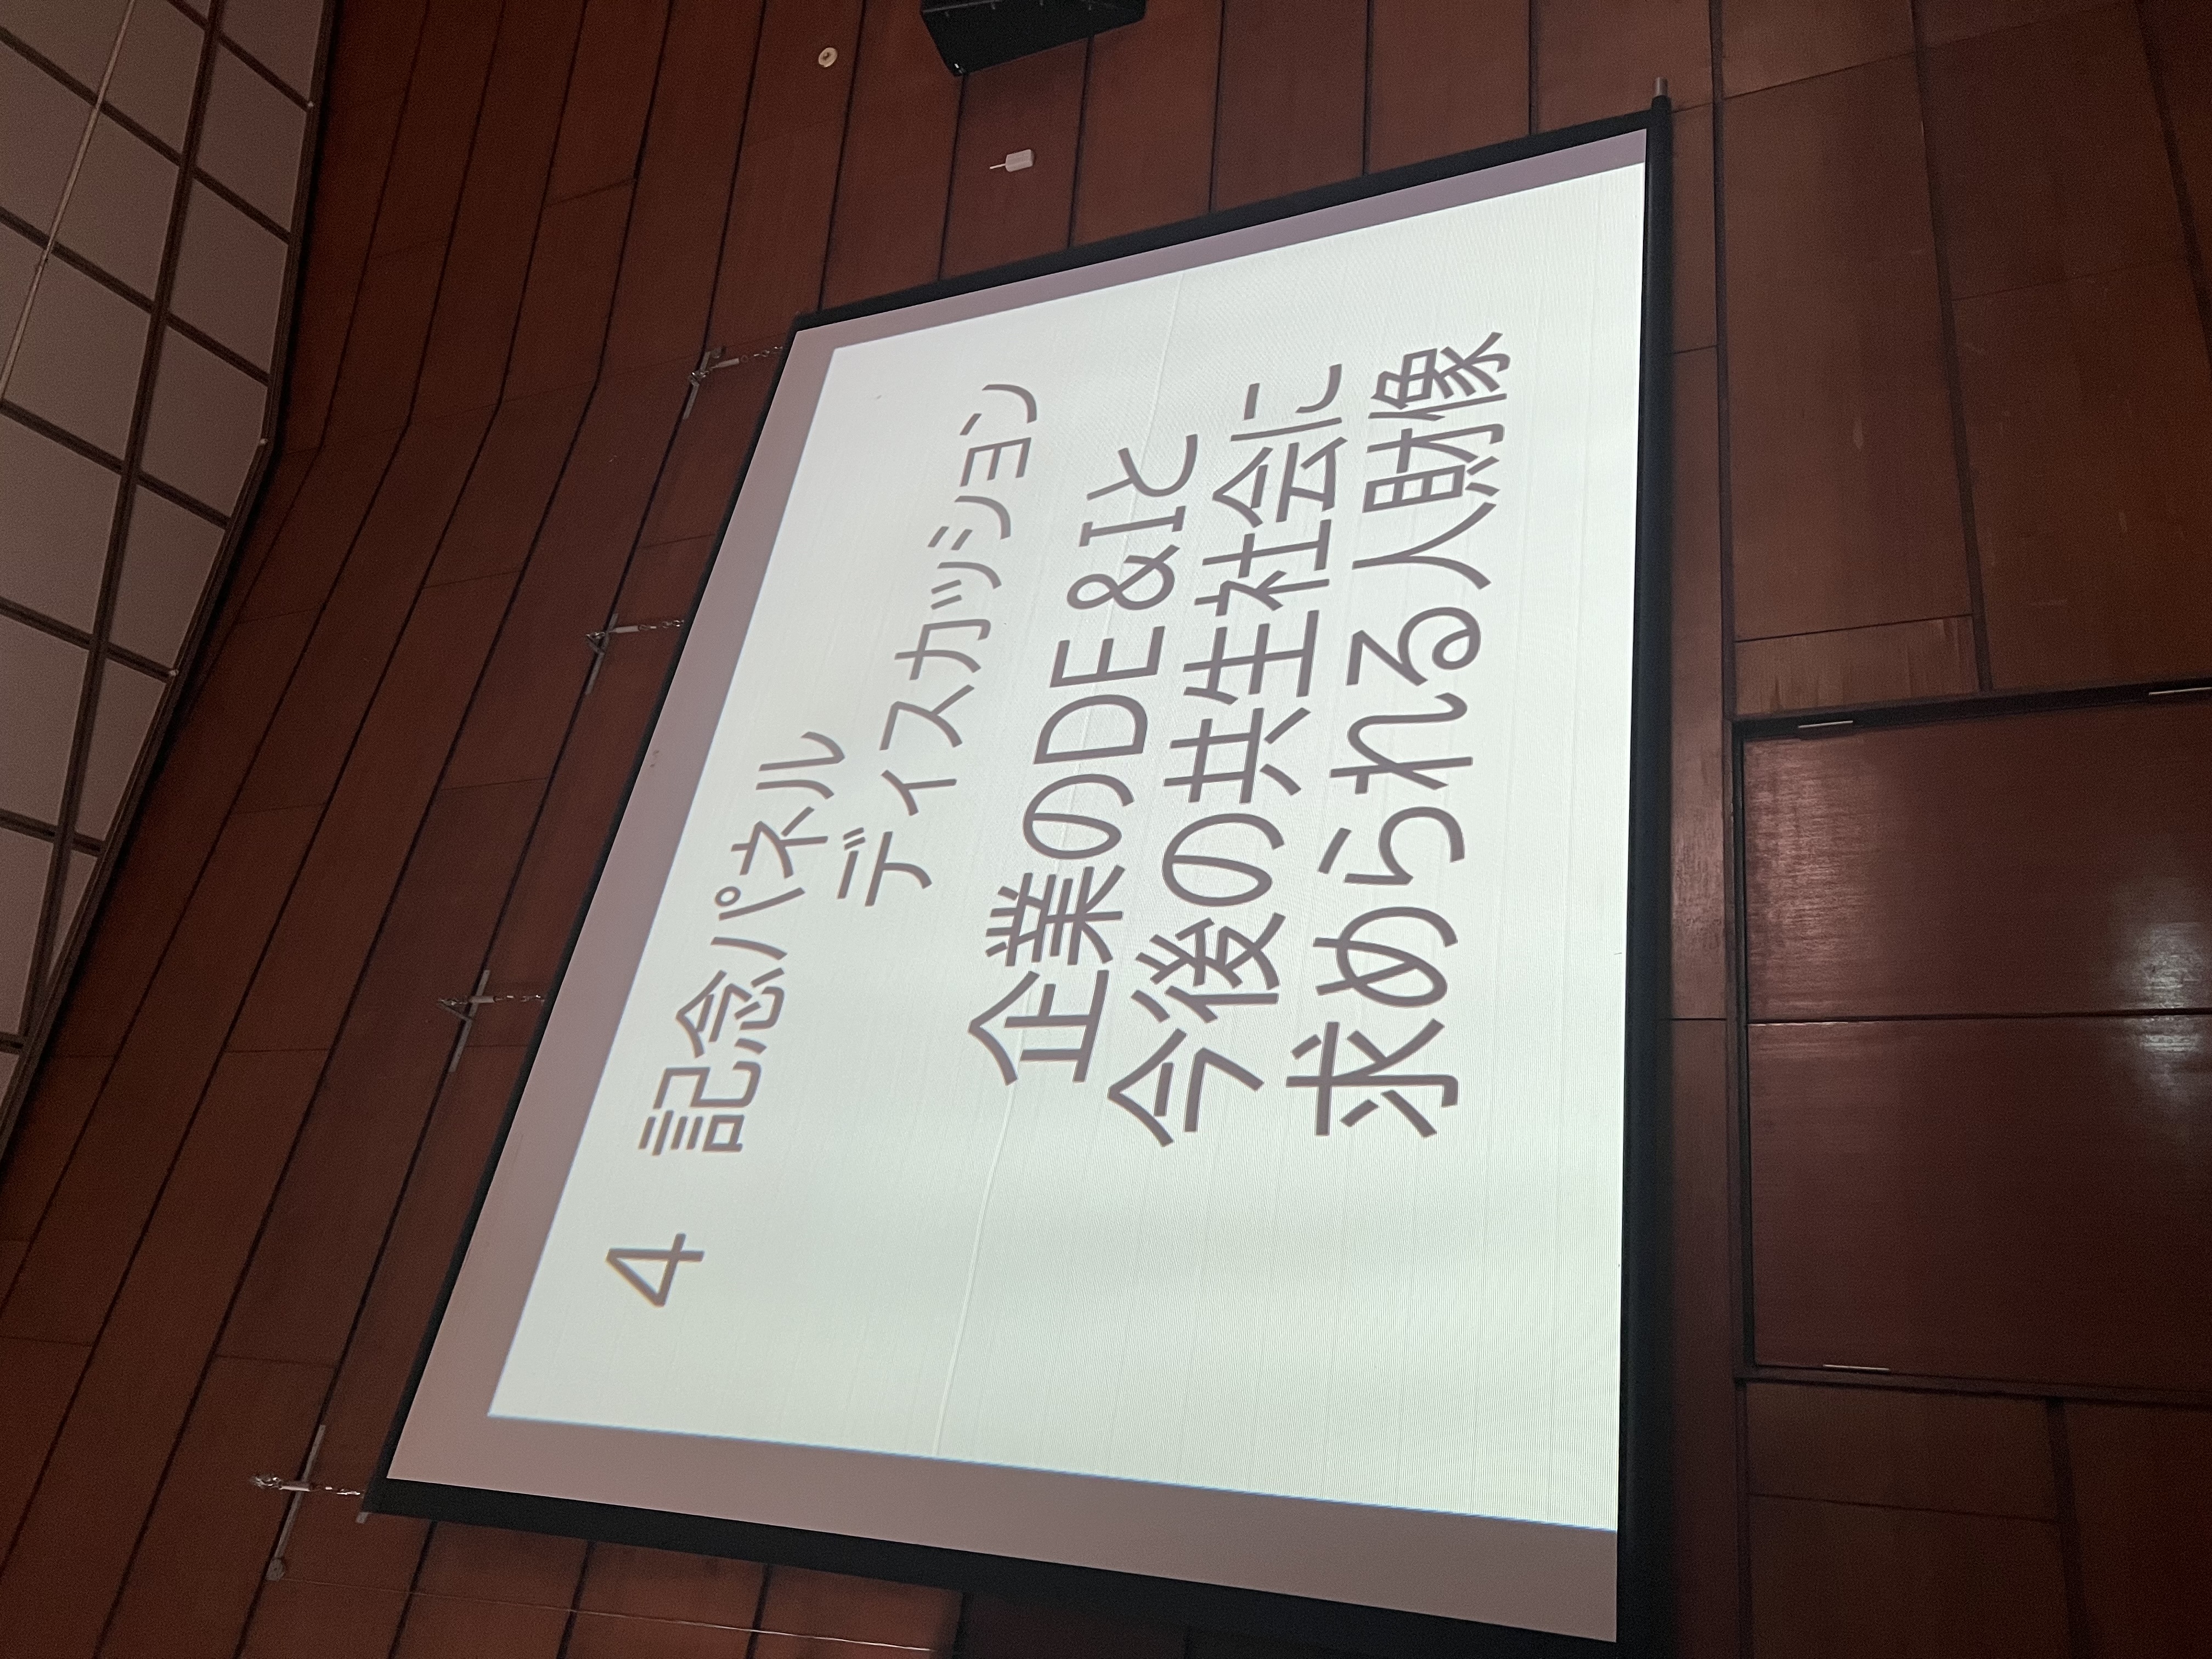 4 記念パネル
ディスカッション
企業のDE&Iと
今後の共生社会に
求められる人財像